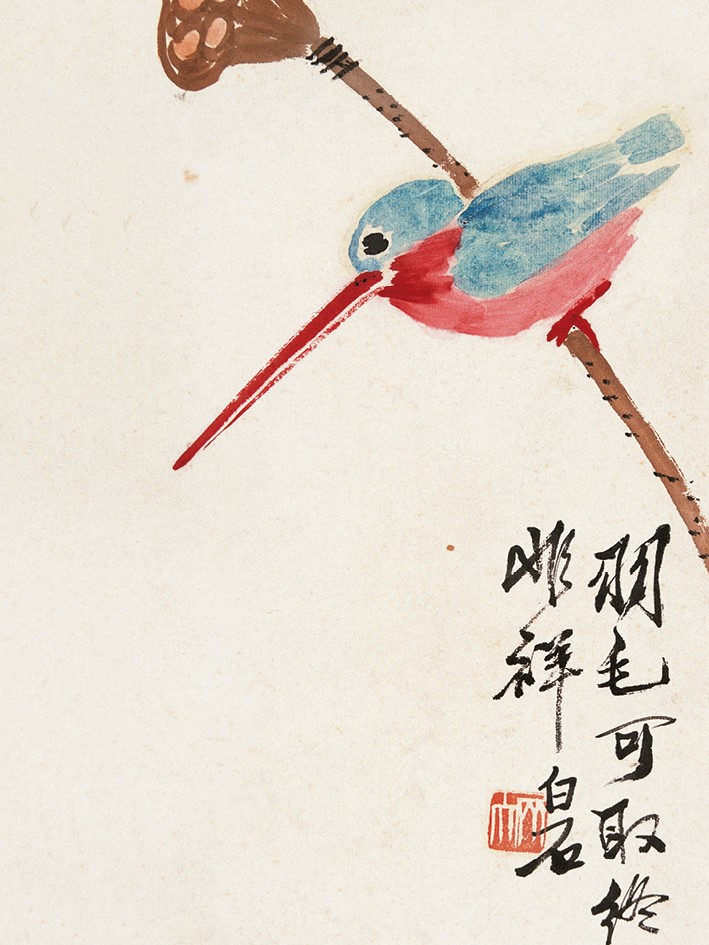 羽毛可取終
非祥
白石